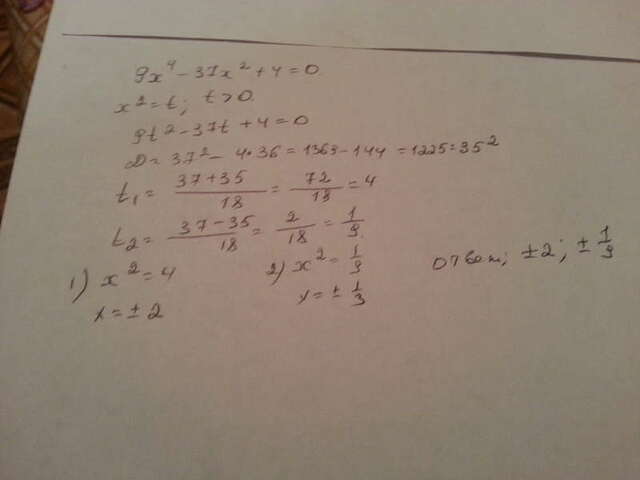 9x⁴ - 37x² + 4 = 0
x² = t; t > 0
9t² - 37t + 4 = 0
D = 37² - 4·36 = 1369 - 144 = 1225 = 35²
t₁ = (37+35)/18 = 72/18 = 4
t₂ = (37-35)/18 = 2/18 = 1/9
1) x² = 4 2) x² = 1/9 ответ; ±2; ±1/9
x = ±2 x = ±1/3